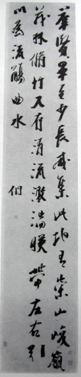 羣賢畢至少長咸集此地有崇山峻嶺
茂林脩竹又有清流激湍暎帶左右引
以為流觴曲水